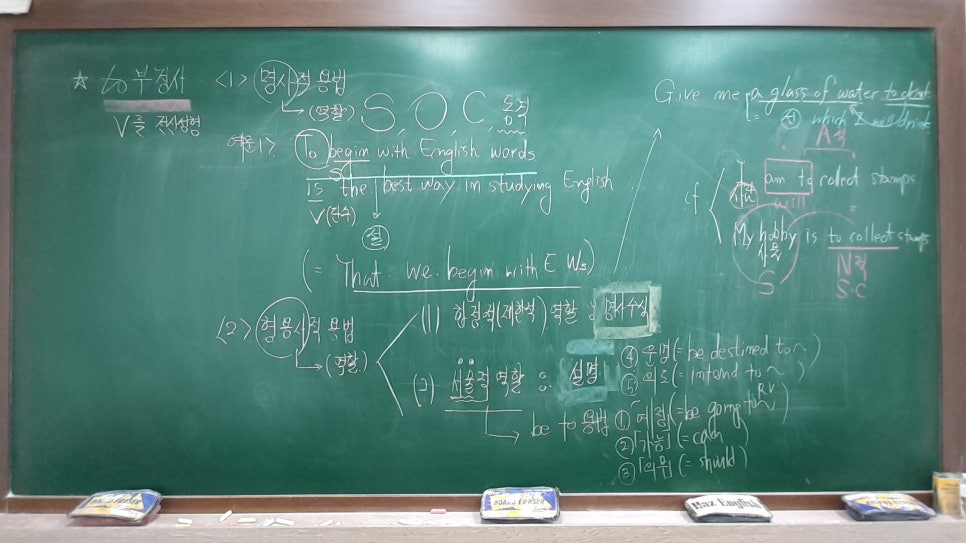 ☆ to 부정사
V를 전사성형
<1> 명사적 용법
(역할) S, O, C, 동격
예문1> To begin with English words
S
is the best way in studying English
V(단수)
설
(= That we begin with E Ws)
<2> 형용사적 용법
(역할)
(1) 한정적(제한적) 역할 : 명사수식
(2) 서술적 역할 : 설명
be to 용법 ① 예정(=be going to RV)
② 가능 (= can)
③ 의무 (= should)
④ 운명 (= be destined to ~)
⑤ 의도 (= intend to ~)
Give me a glass of water to drink
which I will drink
A적
cf
I am to collect stamps
사람
will
=
My hobby is to collect stamps
사물
S
N적
S.C
BOARD ERASER
BOARD ERASER
Haz English